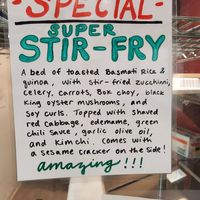 - SPECIAL -
SUPER
STIR-FRY
A bed of toasted Basmati Rice &
quinoa, with stir-fried zucchini,
celery, carrots, Bok choy, black
King oyster mushrooms, and
Soy curls. Topped with shaved
red cabbage, edemame, green
chili sauce, garlic olive oil,
and kimchi. Comes with
a sesame cracker on the side!
amazing!!!